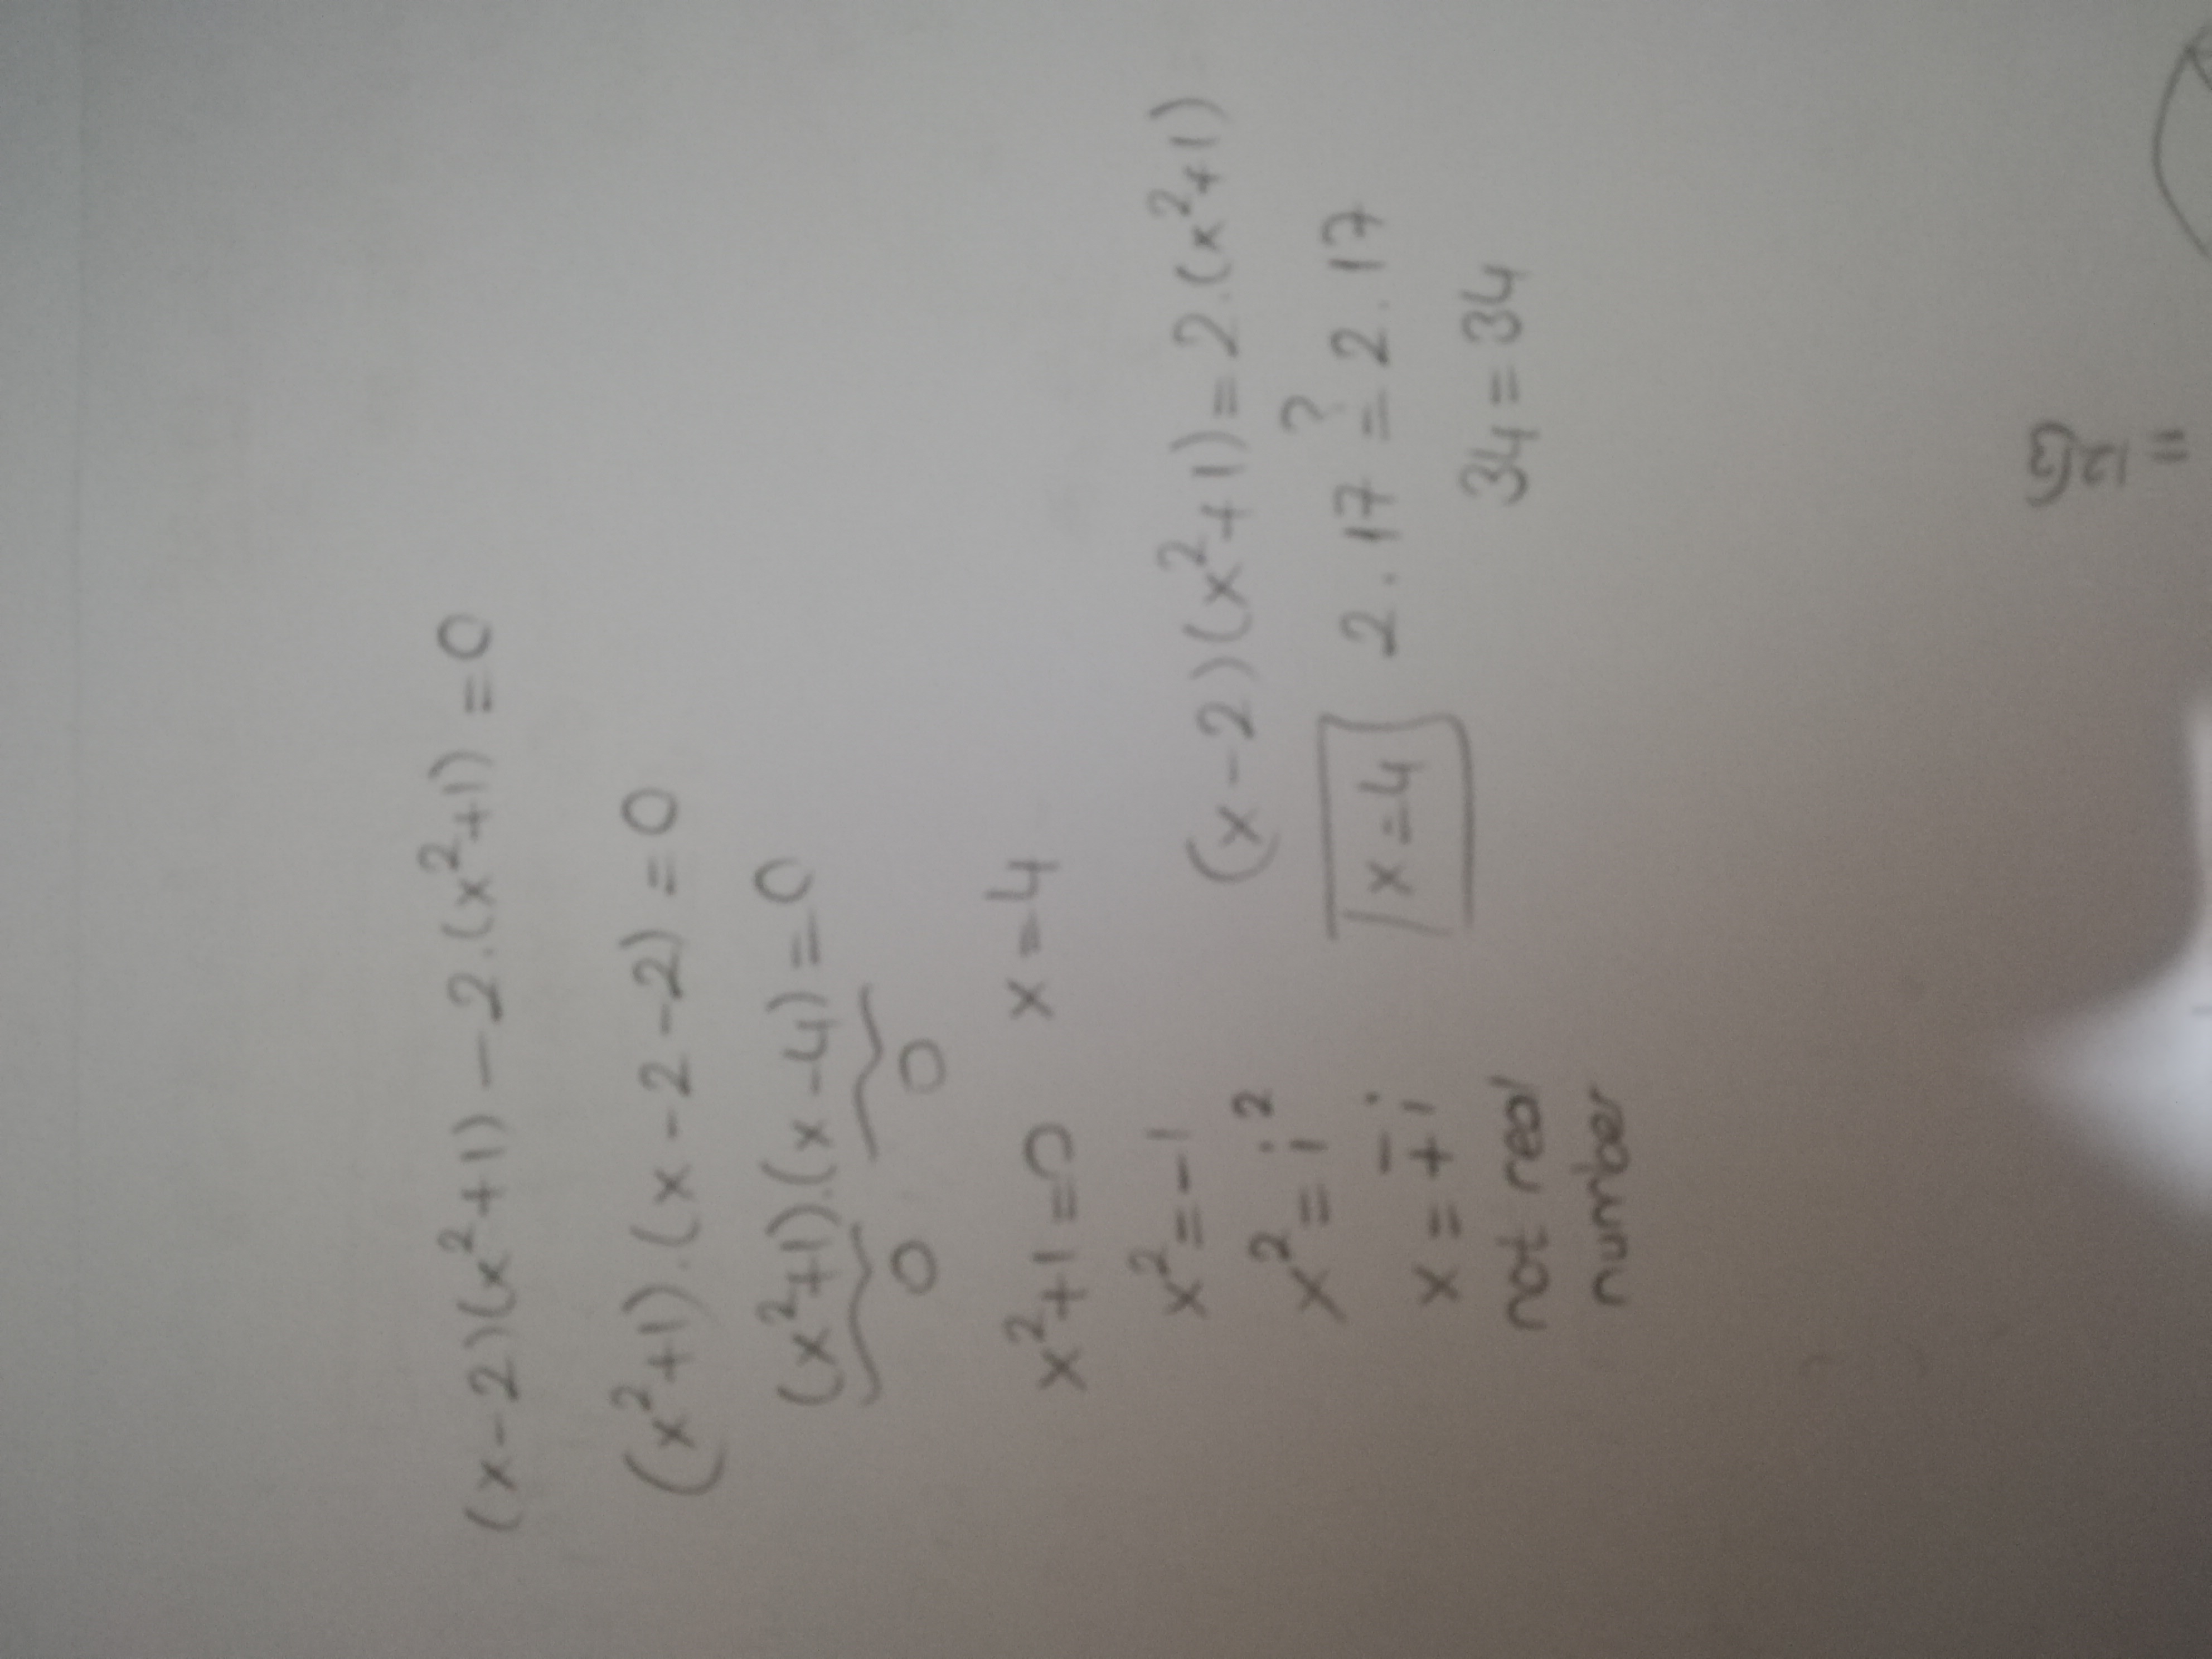 (x-2)(x²+1)-2.(x²+1)=0
(x²+1).(x-2-2)=0
(x²+1).(x-4)=0
0 0
x²+1=0 x=4
x²=-1
x²=i²
x=±i
not real
number
(x-2)(x²+1)=2.(x²+1)
x=4 2.17 ?= 2.17
34=34